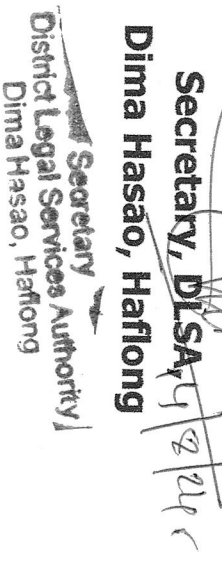 Secretary, DLSA,
Dima Hasao, Haflong
Secretary
District Legal Services Authority
Dima Hasao, Haflong